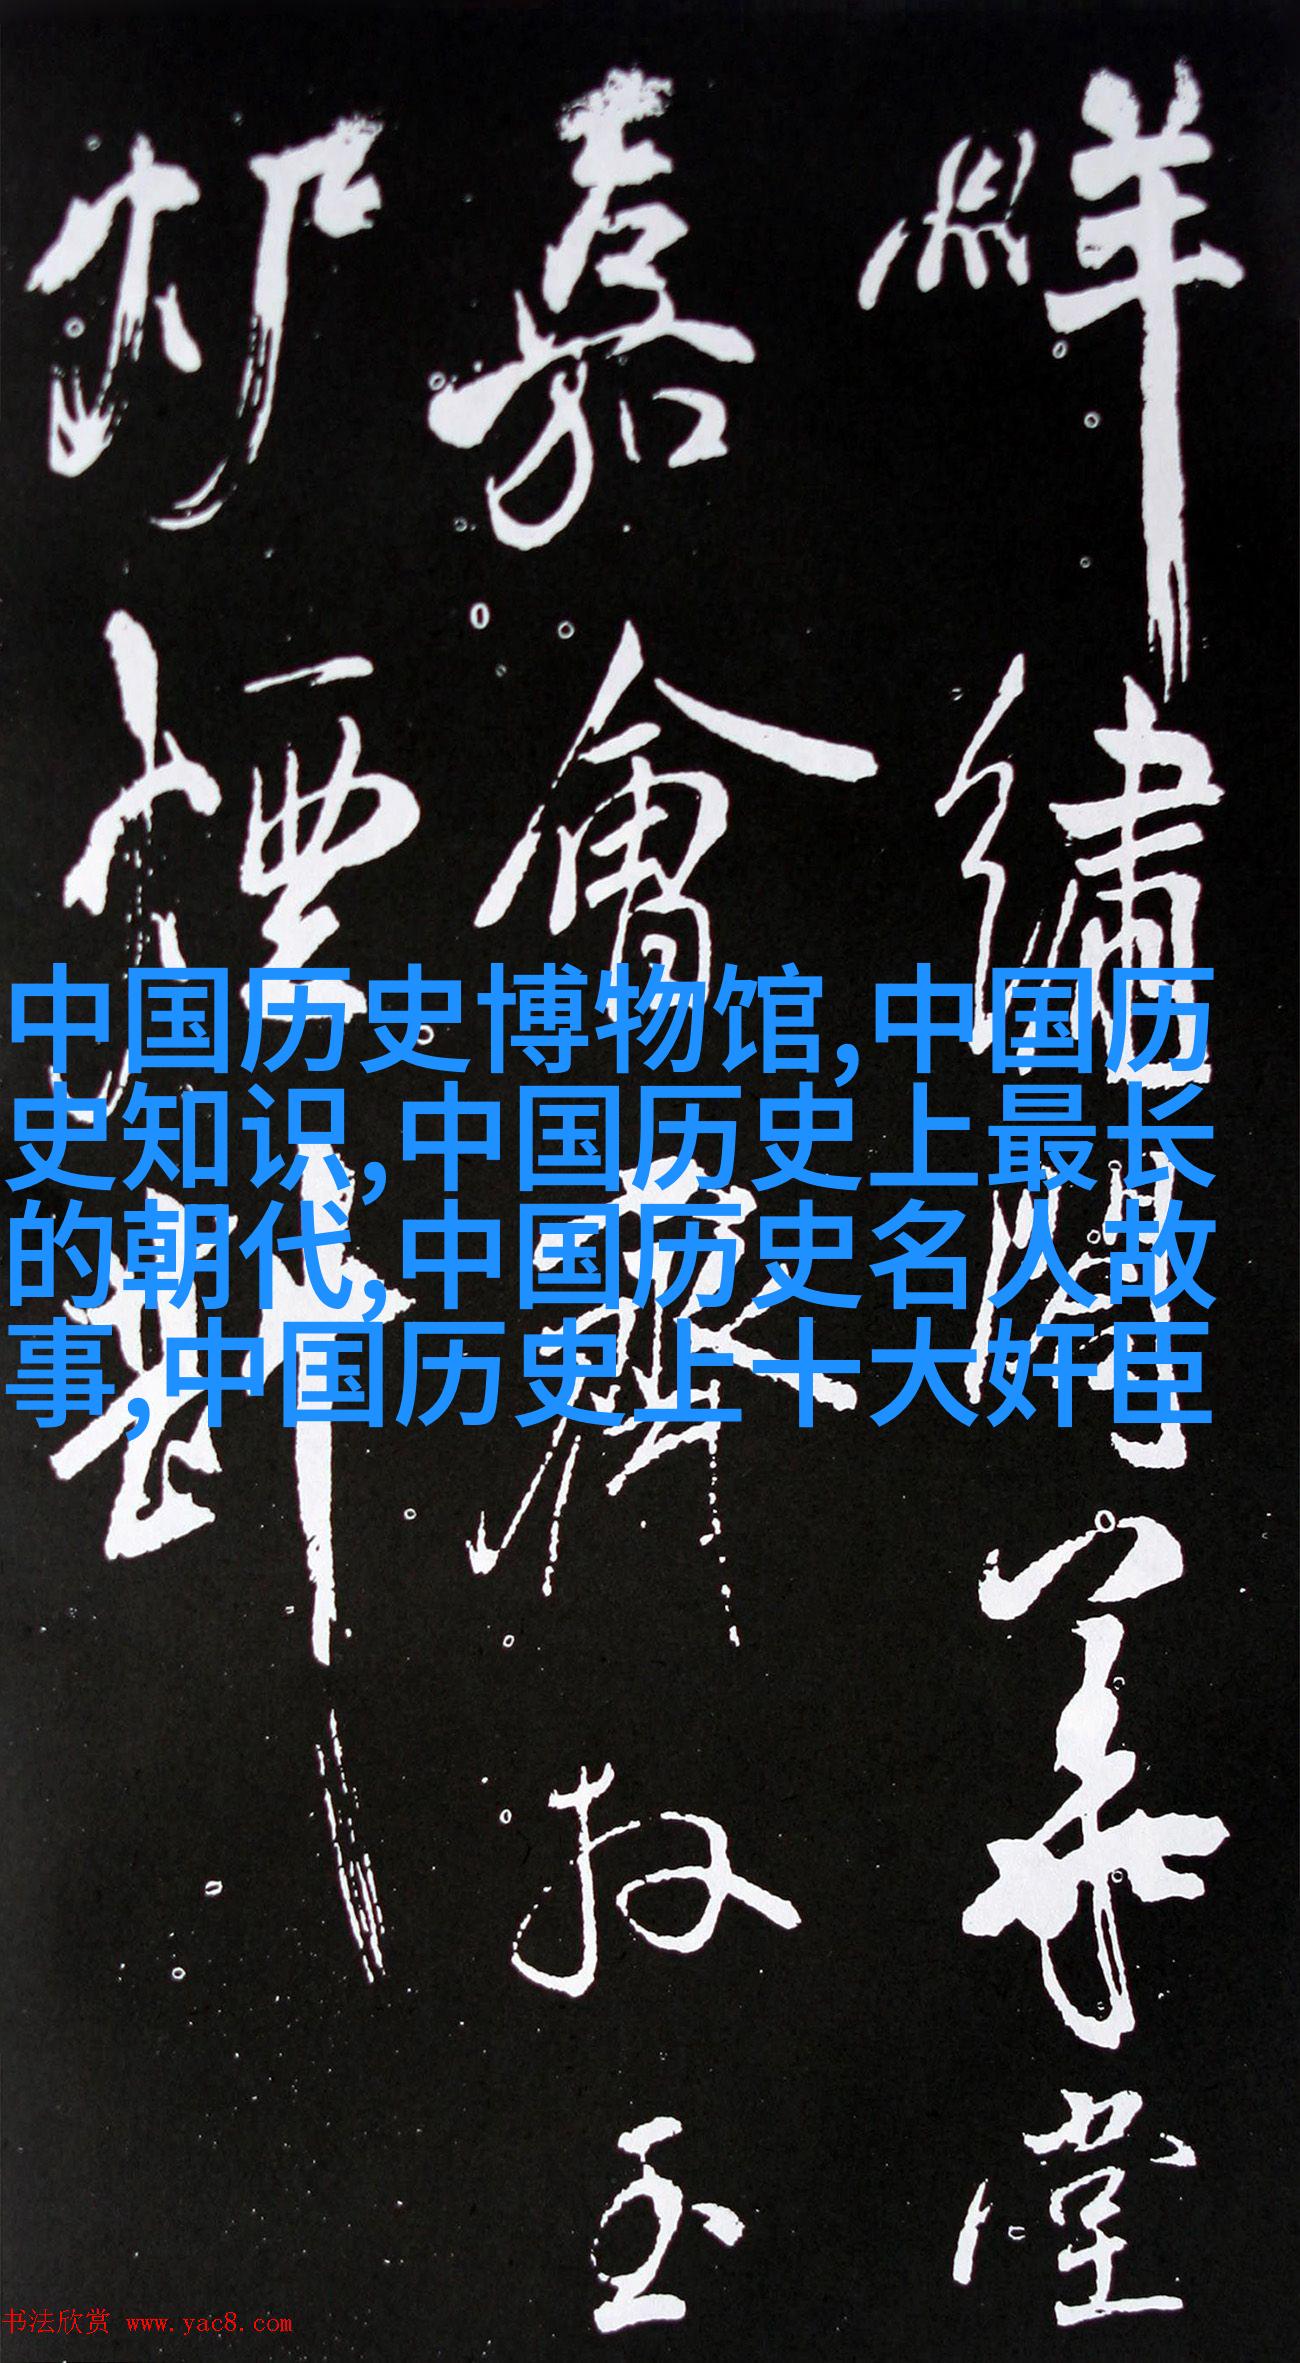 繡華堂
嘉會玉
斟
中国历史博物馆,中国历
史知识,中国历史上最长
的朝代,中国历史名人故
事,中国历史上十大奸臣
书法欣赏 www.yac8.com